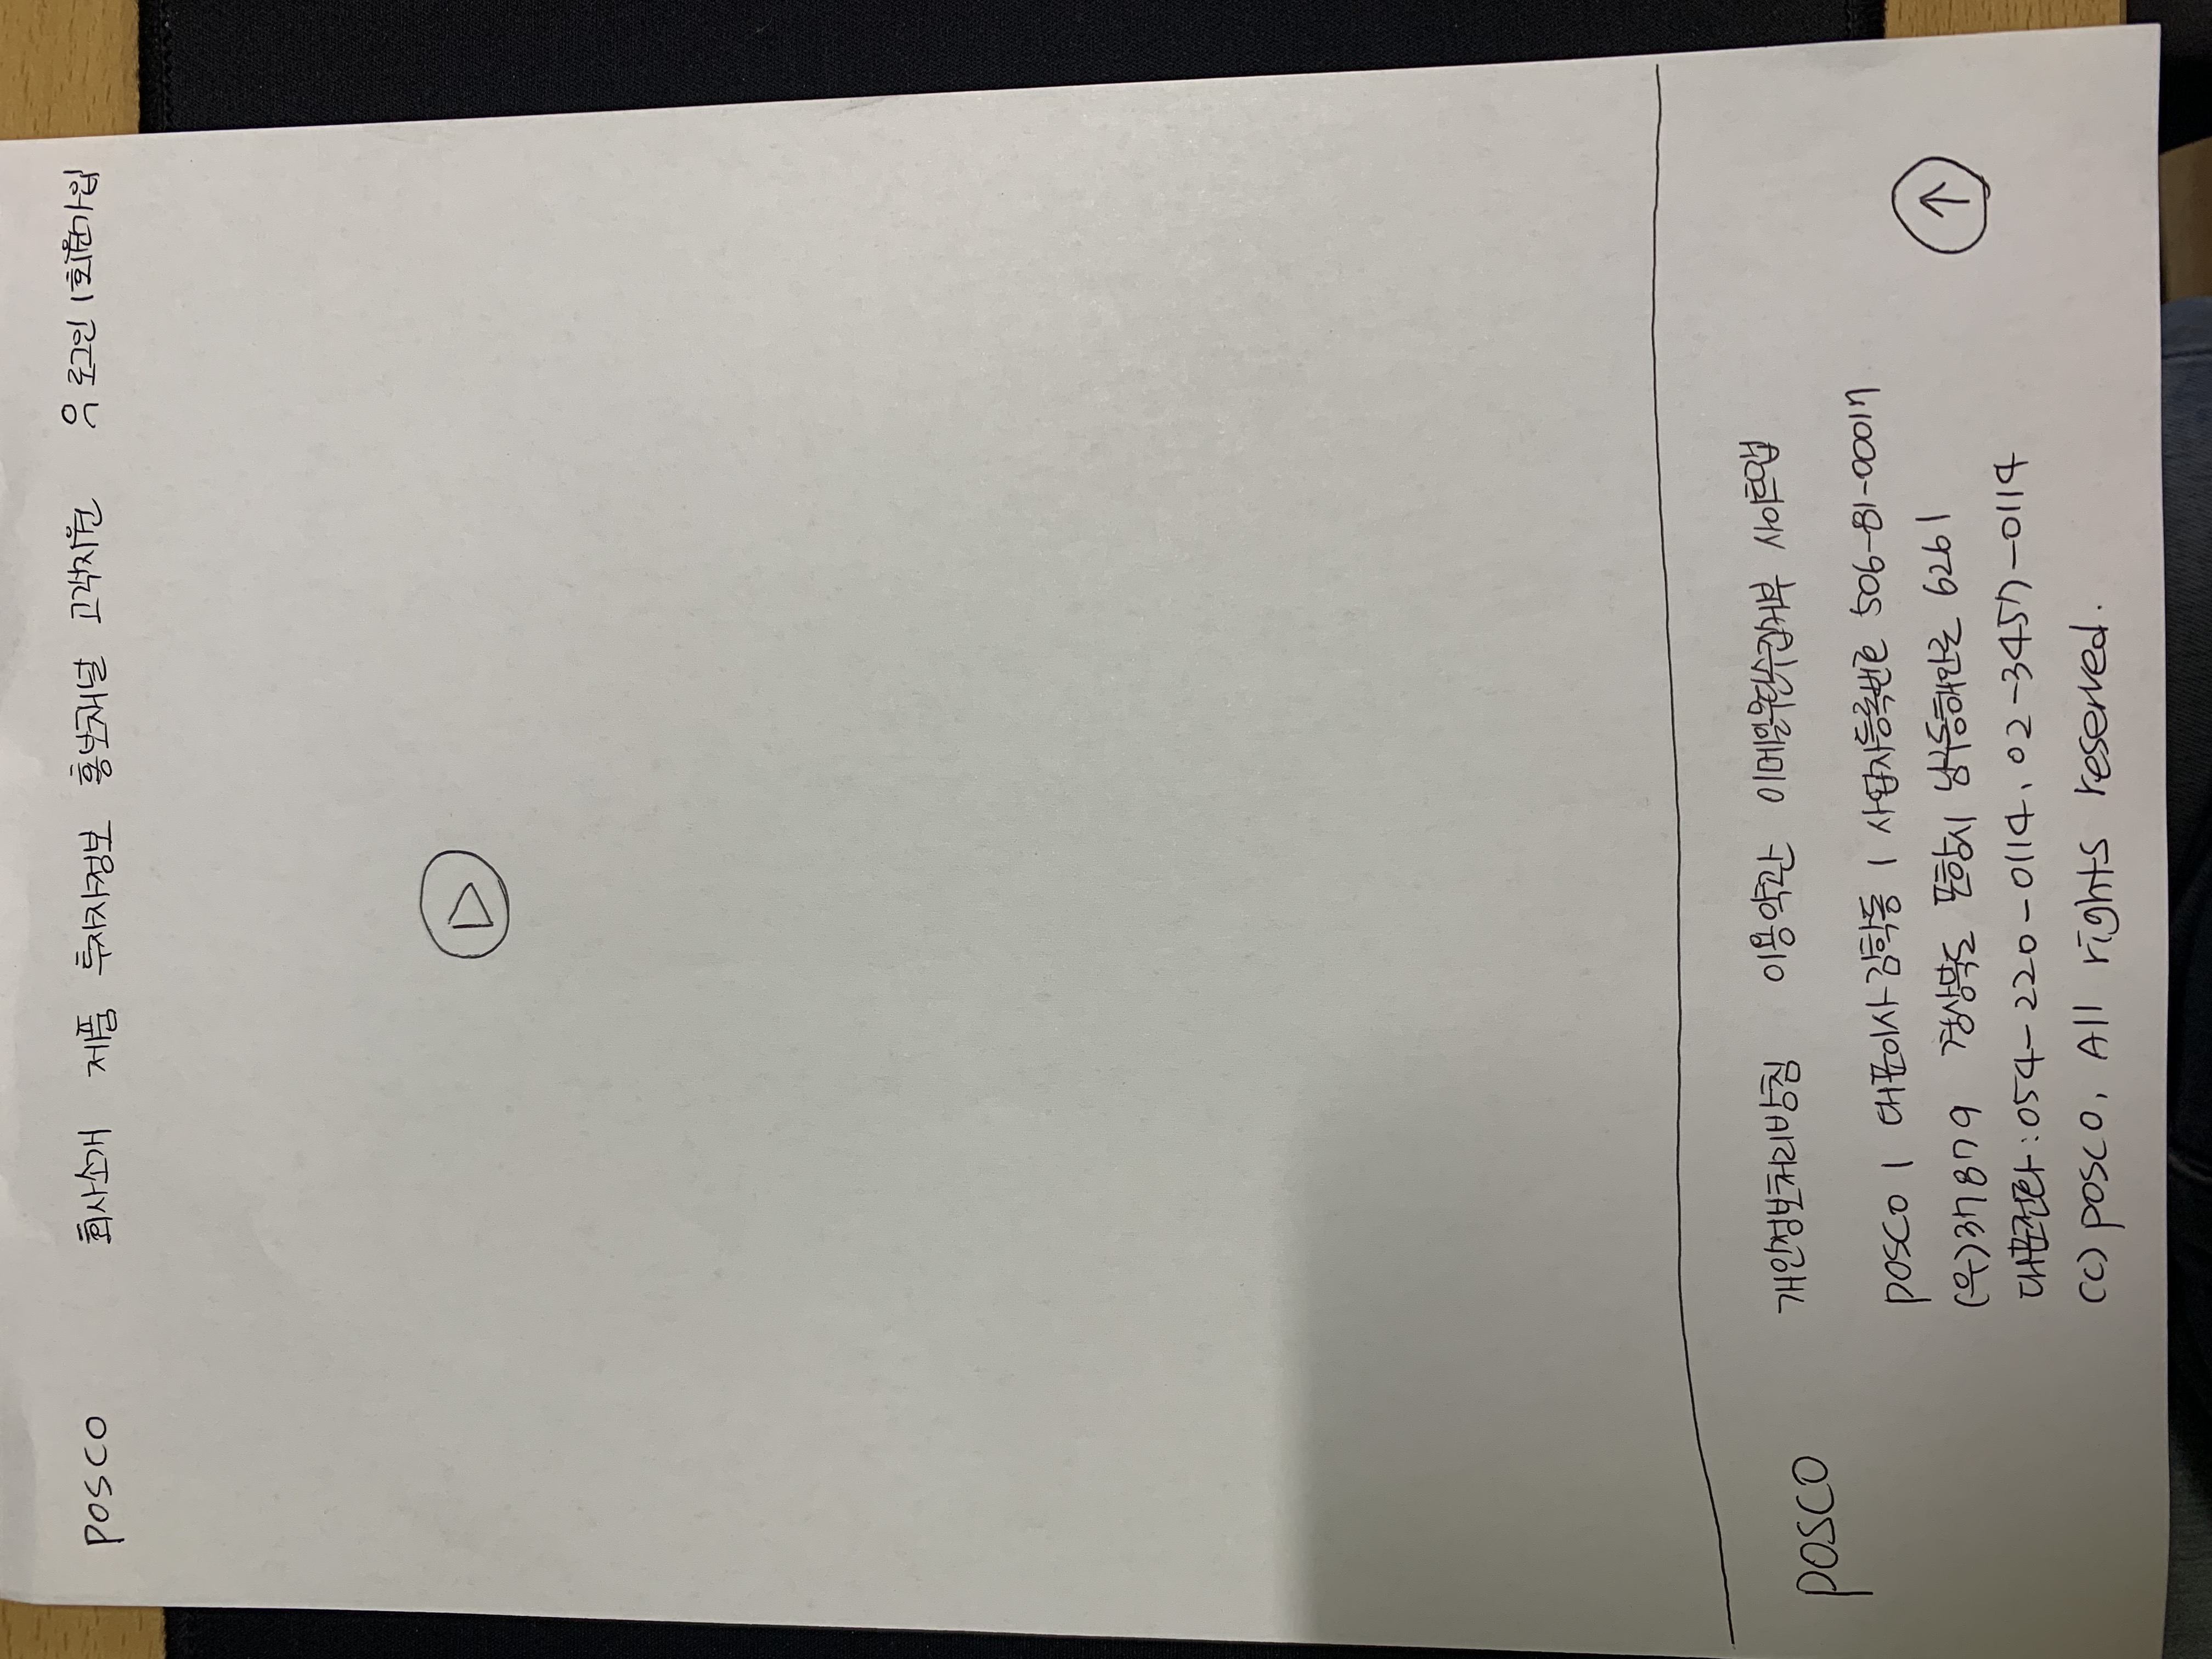 POSCO 회사소개 제품 투자자정보 홍보채널 고객지원 로그인 | 회원가입
개인정보처리방침 이용약관 이메일무단수집거부 사이트맵
POSCO
POSCO | 대표이사 김학동 | 사업자등록번호 506-81-00017
(우)37879 경상북도 포항시 남구동해안로 6261
대표전화 : 054-220-0114, 02-3457-0114
(c) POSCO, All rights reserved.